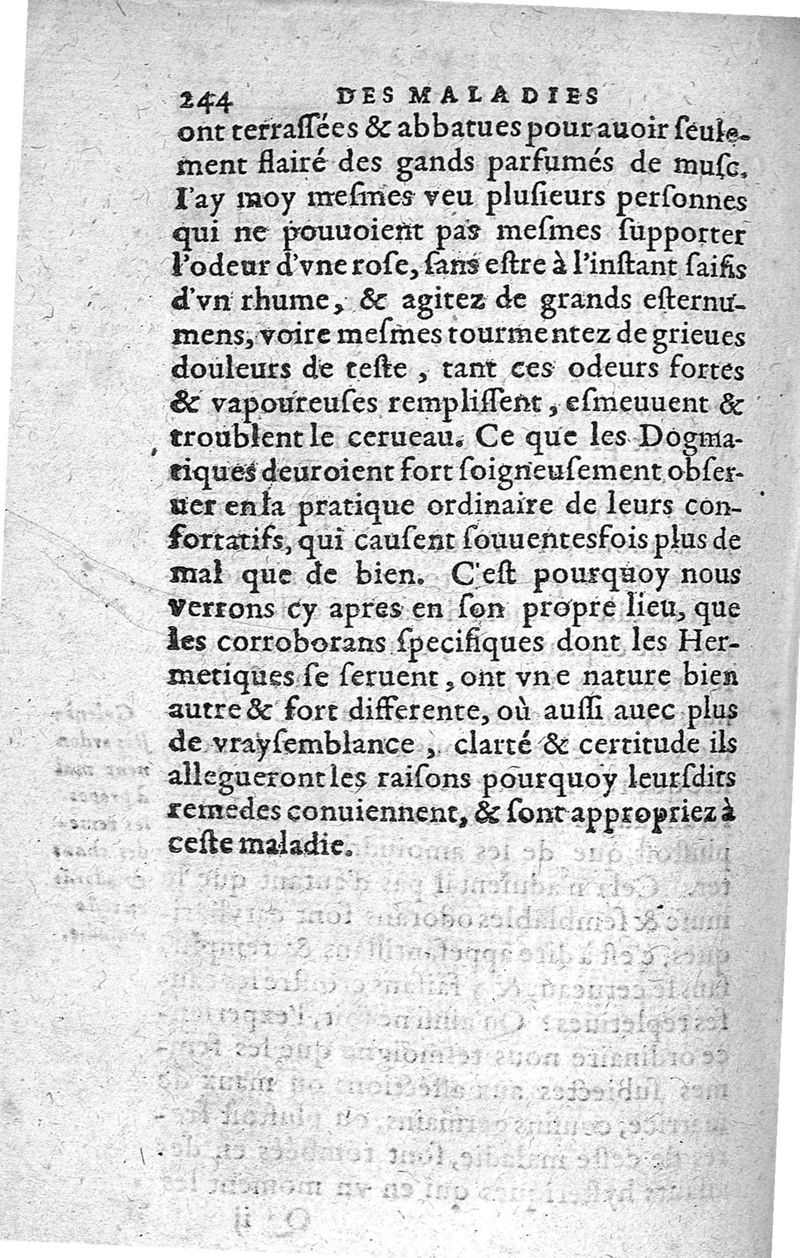 244 DES MALADIES
ont terraſſées & abbatues pour auoir ſeule-
ment flairé des gands parfumés de muſc.
I'ay moy meſmes veu pluſieurs perſonnes
qui ne pouuoient pas meſmes ſupporter
l'odeur d'vne roſe, ſans eſtre à l'inſtant ſaiſis
d'vn rhume, & agitez de grands eſternu-
mens, voire meſmes tourmentez de grieues
douleurs de teſte, tant ces odeurs fortes
& vapoureuſes rempliſſent, eſmeuuent &
troublent le cerueau. Ce que les Dogma-
tiques deuroient fort ſoigneuſement obſer-
uer en la pratique ordinaire de leurs con-
fortatifs, qui cauſent ſouuentesfois plus de
mal que de bien. C'eſt pourquoy nous
verrons cy apres en ſon propre lieu, que
les corroborans ſpecifiques dont les Her-
metiques ſe ſeruent, ont vne nature bien
autre & fort differente, où auſſi auec plus
de vrayſemblance, clarté & certitude ils
allegueront les raiſons pourquoy leurſdits
remedes conuiennent, & ſont appropriez à
ceſte maladie.